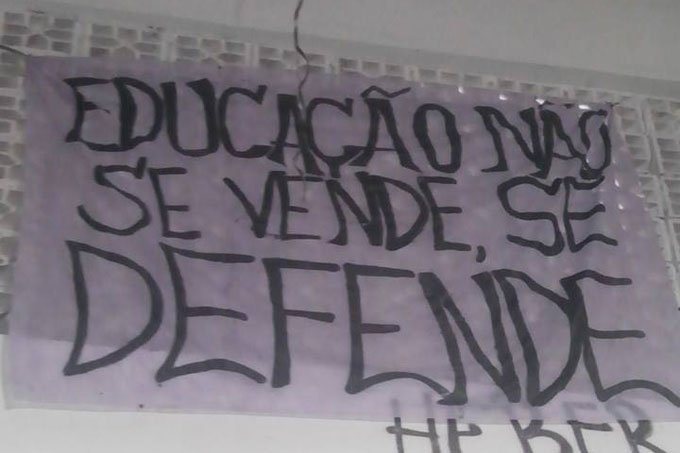 EDUCAÇÃO NÃO
SE VENDE, SE
DEFENDE